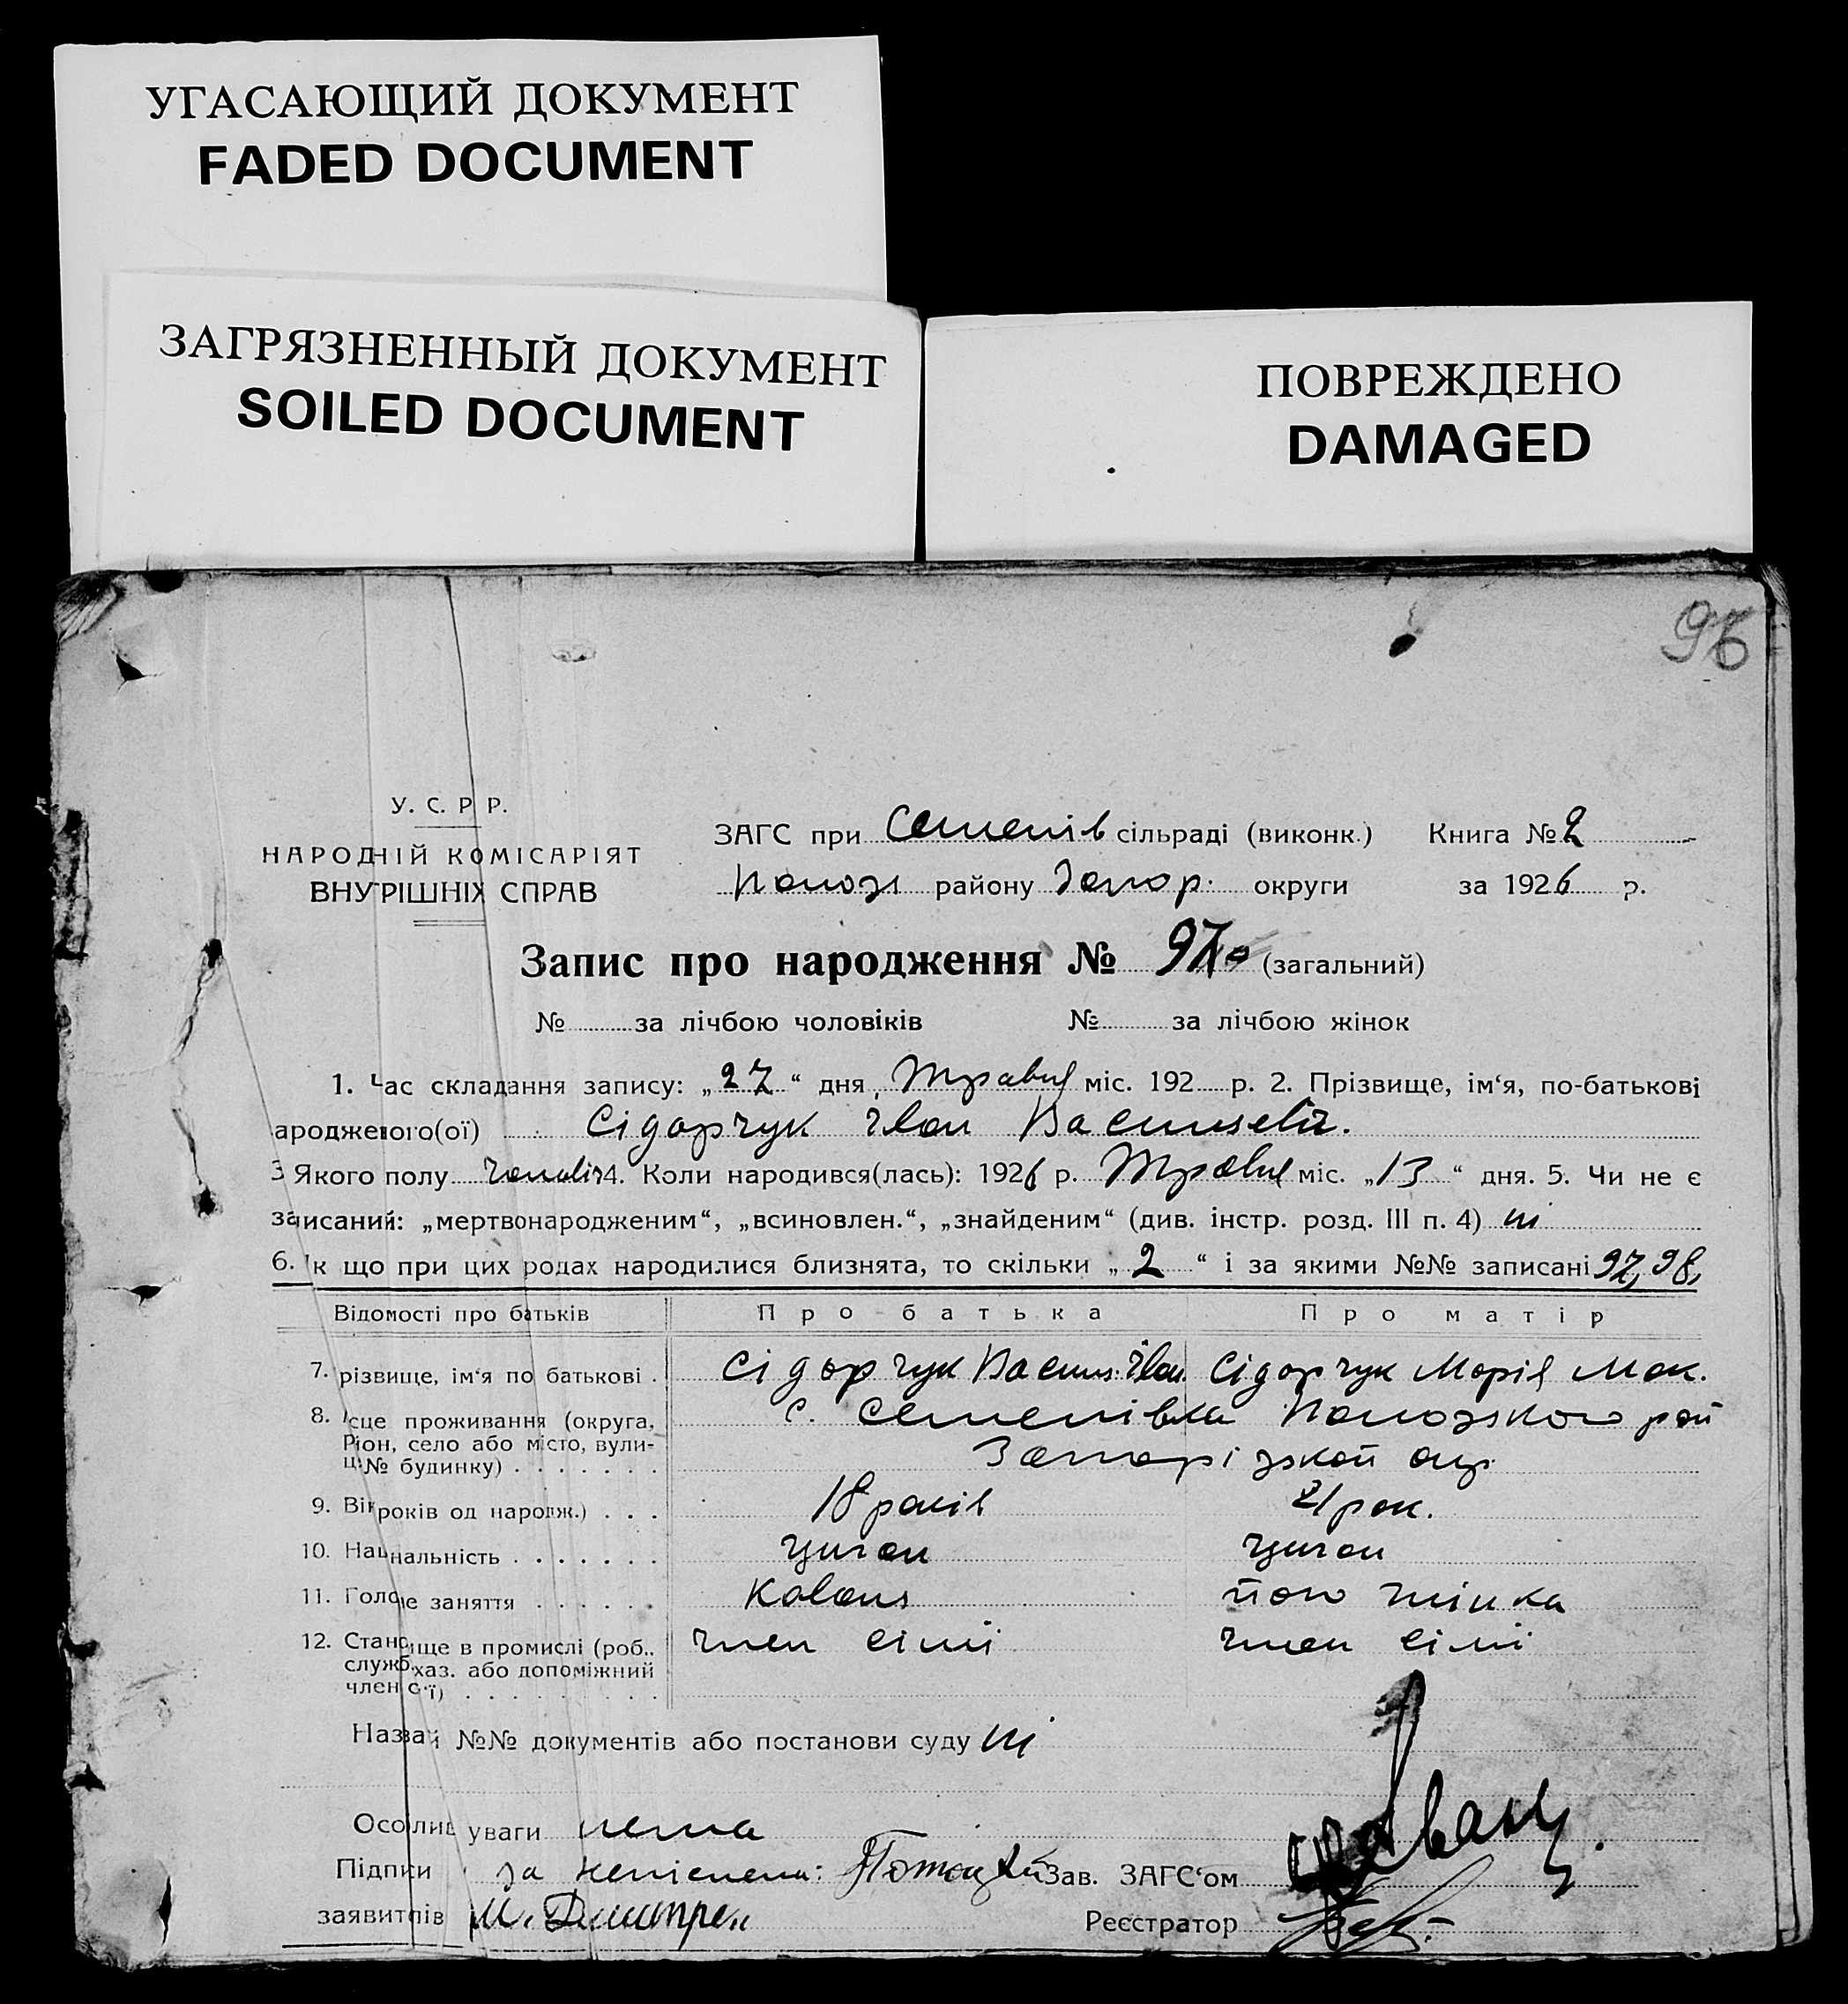 УГАСАЮЩИЙ ДОКУМЕНТ
FADED DOCUMENT
ЗАГРЯЗНЕННЫЙ ДОКУМЕНТ
SOILED DOCUMENT
ПОВРЕЖДЕНО
DAMAGED
У. С. Р Р.
НАРОДНІЙ КОМІСАРІЯТ
ВНУТРІШНІХ СПРАВ
ЗАГС при Семенів сільраді (виконк.) Книга № 2
Пологз району Запор. округи за 1926 р.
Запис про народження № 97 (загальний)
№ за лічбою чоловіків № за лічбою жінок
1. Час складання запису: „27“ дня, Травня міс. 192 р. 2. Прізвище, ім‘я, по-батькові
ародженого(ої) Сідорчук Іван Василевич.
3 Якого полу чоловіч 4. Коли народився(лась): 1926 р. Травня міс. „13“ дня. 5. Чи не є
записаний: „мертвонародженим“, „всиновлен.“, „знайденим“ (див. інстр. розд. III п. 4) ні
6. к що при цих родах народилися близнята, то скільки „2“ і за якими №№ записані 97, 98,
Відомості про батьків Про батька Про матір
7. різвище, ім‘я по батькові . Сідорчук Васил. Іван. Сідорчук Марія Мак.
8. сце проживання (округа, с. Семенівка Пологзського рай
Ріон, село або місто, вули-
ц. № будинку) Запорізской окр.
9. Вік років од народж.) . . . 18 років 21 рок.
10. Націнальність циган циган
11. Голове заняття коваль його жінка
12. Становище в промислі (роб.. член сімї член сімї
служб. хаз. або допоміжний
член с ї)
Назва й №№ документів або постанови суду ні
Особлив уваги нема
Підписи за неписмен: Потоцкий Зав. ЗАГС‘ом
заявитлів Реєстратор